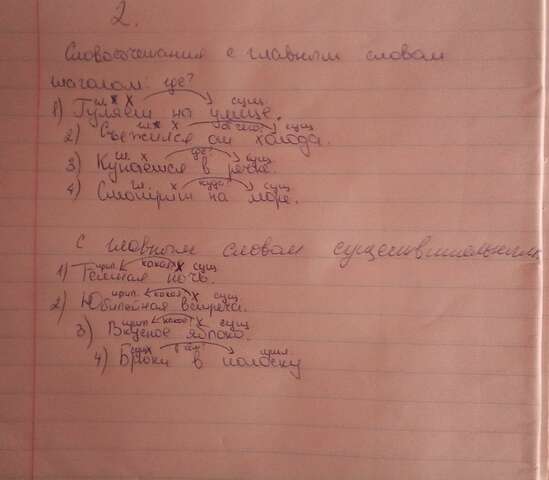 2.
Словосочетания с главным словом
глаголом: где?
гл х сущ.
1) Гуляем на улице.
гл х сущ
2) Съежился от холода.
гл х где? сущ
3) Купаемся в речке.
гл х куда? сущ
4) Смотрим на море.
С главным словом существительным
прил какая? х сущ
1) Тёмная ночь.
прил какая? х сущ
2) Юбилейная встреча.
прил какое? х сущ
3) Вкусное яблоко.
сущ х прил
4) Брюки в полоску